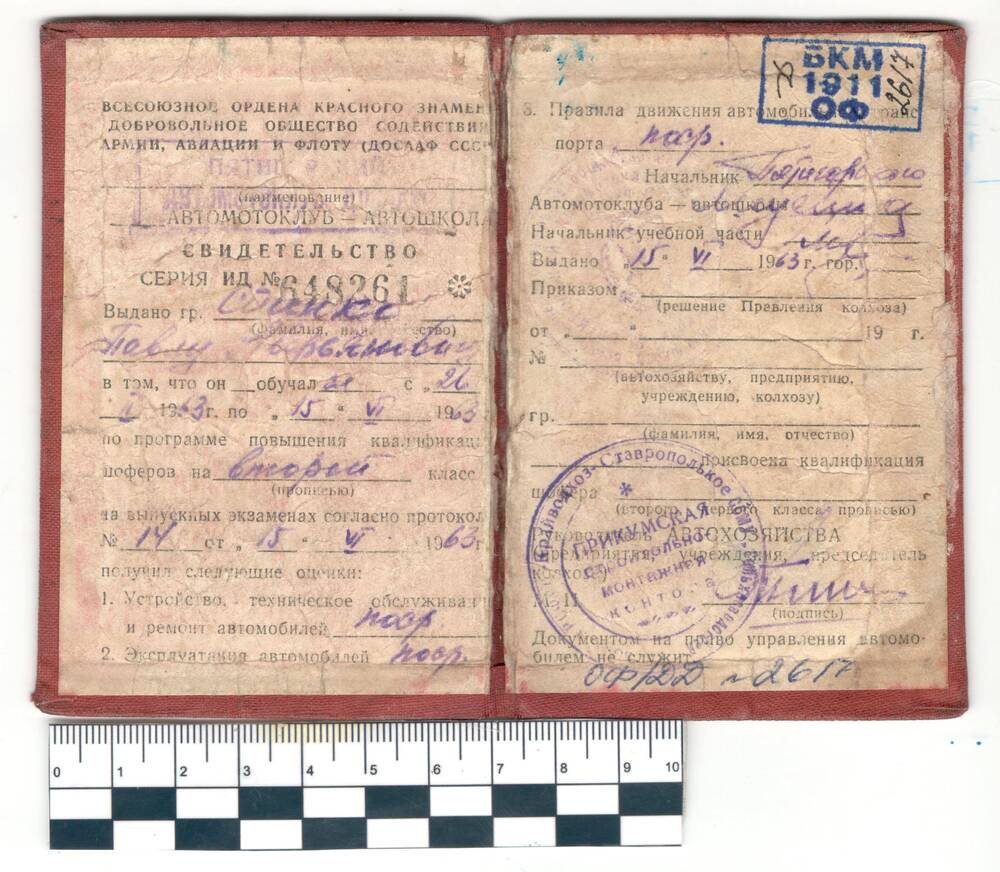 ВСЕСОЮЗНОЕ ОРДЕНА КРАСНОГО ЗНАМЕН
ДОБРОВОЛЬНОЕ ОБЩЕСТВО СОДЕЙСТВИ
АРМИИ, АВИАЦИИ И ФЛОТУ (ДОСААФ ССС
(наименование)
АВТОМОТОКЛУБ — АВТОШКОЛА
СВИДЕТЕЛЬСТВО
СЕРИЯ ИД № 648261
Выдано гр.
(фамилия, имя, отчество)
Павлу
в том, что он обучал с „26
1963 г. по „15“ VI 1963
по программе повышения квалификац
шоферов на второй класс
(прописью)
на выпускных экзаменах согласно протокол
№ 14 от „15“ VI 1963 г.
получил следующие оценки:
1. Устройство, техническое обслуживан
и ремонт автомобилей поср
2. Эксплуатация автомобилей поср.
БКМ
1911
ОФ
2617
3. Правила движения автомобил транс
порта поср.
Начальник
Автомотоклуба — автошколы
Начальник учебной части
Выдано „15“ VI 1963 г. гор.
Приказом
(решение Правления колхоза)
от „ “ 19 г.
№
(автохозяйству, предприятию,
учреждению, колхозу)
гр.
(фамилия, имя, отчество)
присвоена квалификация
шофера
(второго, первого класса прописью)
Руководитель АВТОХОЗЯЙСТВА
предприятия, учреждения, председатель
колхоза
М. П.
(подпись)
Крайводхоз-Ставропольское
ПРИКУМСКАЯ
СТРОИТЕЛЬНО
МОНТАЖНАЯ
КОНТОРА
Документом на право управления автомо-
билем не служит
ОФ/ДД №2617
0 1 2 3 4 5 6 7 8 9 10